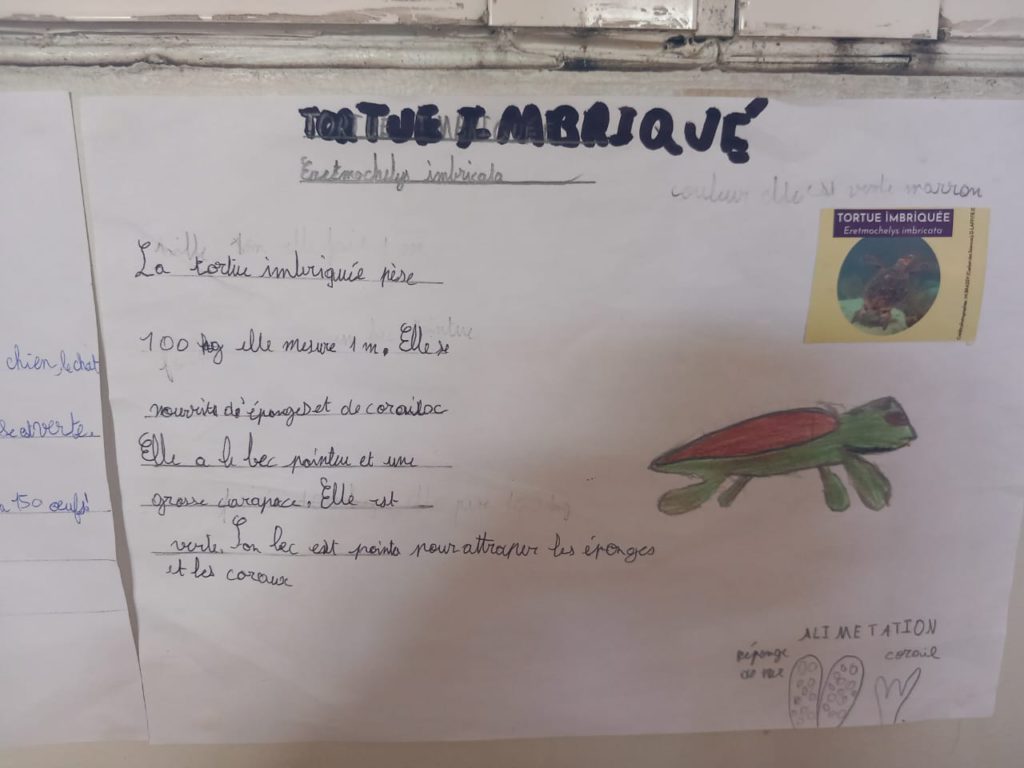 TORTUE IMBRIQUÉ
Eretmochelys imbricata
couleur elle est verte marron
TORTUE IMBRIQUÉE
Eretmochelys imbricata
La tortue imbriquée pèse
100 kg elle mesure 1 m. Elle se
nourrits de éponges et de corail
Elle a le bec pointu et une
grosse carapace. Elle est
verte. Son bec est points pour attraper les éponges
et les coraux
ALIMETATION
éponge
de mer
corail
chien, le chat
verte.
150 oeufs